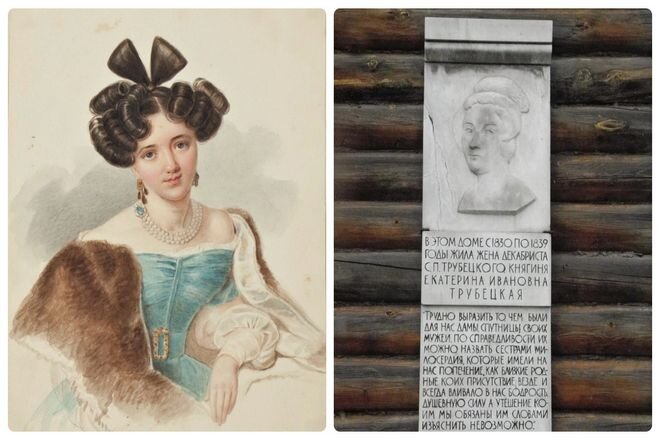 В ЭТОМ ДОМЕ С 1830 ПО 1839
ГОДЫ ЖИЛА ЖЕНА ДЕКАБРИСТА
С.П. ТРУБЕЦКОГО КНЯГИНЯ
ЕКАТЕРИНА ИВАНОВНА
ТРУБЕЦКАЯ
"ТРУДНО ВЫРАЗИТЬ ТО ЧЕМ БЫЛИ
ДЛЯ НАС ДАМЫ СПУТНИЦЫ СВОИХ
МУЖЕЙ. ПО СПРАВЕДЛИВОСТИ ИХ
МОЖНО НАЗВАТЬ СЕСТРАМИ МИ-
ЛОСЕРДИЯ, КОТОРЫЕ ИМЕЛИ НА
НАС ПОПЕЧЕНИЕ, КАК БЛИЗКИЕ РОД-
НЫЕ КОИХ ПРИСУТСТВИЕ ВЕЗДЕ И
ВСЕГДА ВЛИВАЛО В НАС БОДРОСТЬ,
ДУШЕВНУЮ СИЛУ А УТЕШЕНИЕ КО-
ИМ МЫ ОБЯЗАНЫ ИМ СЛОВАМИ
ИЗЪЯСНИТЬ НЕВОЗМОЖНО."